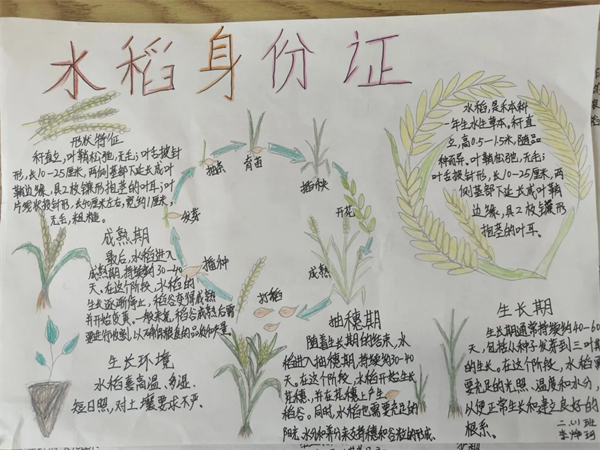 水稻身份证
形状特征
秆直立,叶鞘松弛,无毛;叶舌披针
形,长10-25厘米,两侧基部下延长成叶
鞘边缘,具2枚镰形抱茎的叶耳;叶
片线状披针形,长40厘米左右,宽约1厘米,
无毛,粗糙。
水稻,是禾本科
一年生水生草本,秆直
立,高0.5-1.5米,随品
种而异、叶鞘松弛,无毛;
叶舌披针形,长10-25厘米,两
侧基部下延长成叶鞘
边缘,具2枚镰形
抱茎的叶耳。
抽点
育苗
插秧
开花
成熟
打稻
播种
发芽
成熟期
最后,水稻进入
成熟期,持续约30-40
天。在这个阶段,水稻的
生长逐渐停止,稻谷变得成熟
并开始负黄。一般来说,稻谷成熟后需
要进行收割,以确保粮食的品质和产量。
生长环境
水稻喜高温、多湿、
短日照,对土壤要求不严。
抽穗期
随着生长期的结束,水
稻进入抽穗期,持续约30-40
天。在这个阶段,水稻开始生长
花穗,并在花穗上产生
稻谷。同时,水稻也需要充足的
阳光、水分和养分来支持穗和谷粒的形成。
生长期
生长期通常持续约40-60
天,包括从种子发芽到三叶期
的生长。在这个阶段,水稻需
要充足的光照、温度和水分,
以便正常生长和建立良好的
根系。
二.(1)班